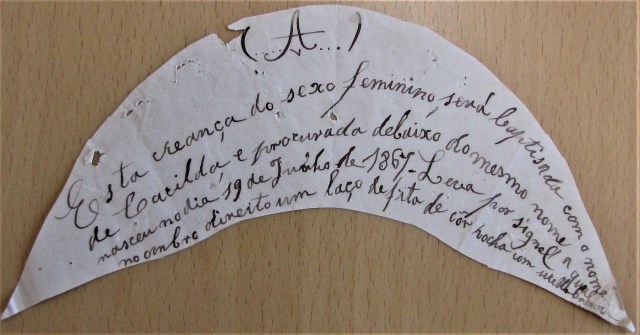 (...A...)
Esta creança do sexo feminino, será baptisada com o nome
de Cacilda, e procurada debaixo do mesmo nome
nasceu no dia 19 de Junho de 1867 - Leva por signal a qual
no ombro direito um laço de fita de côr rocha com